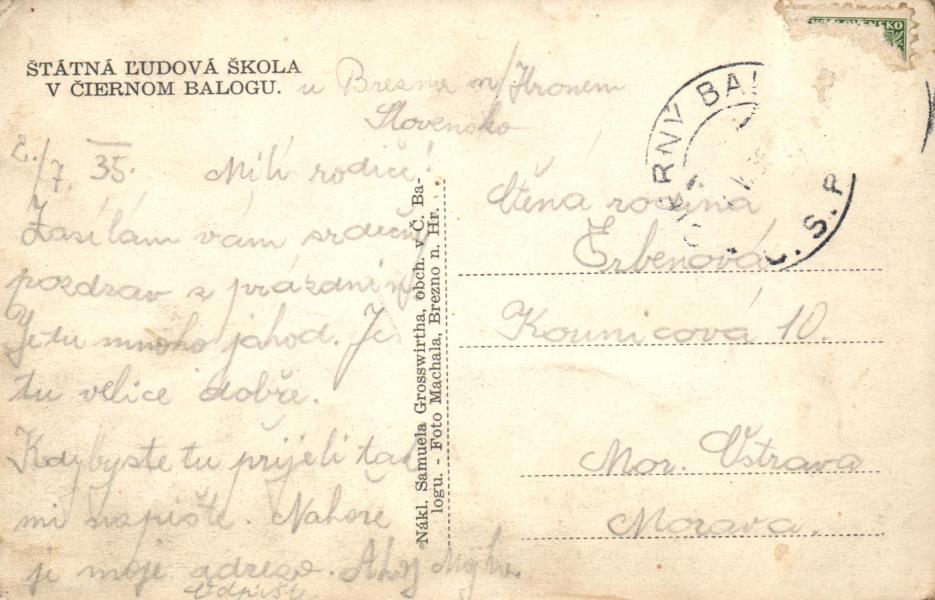 ŠTÁTNÁ ĽUDOVÁ ŠKOLA
V ČIERNOM BALOGU.
u Brezna n/Hronem
Slovensko
2./7. 35. Milí rodiče!
Zasílám vám srdečný
pozdrav z prázdnin
Je tu mnoho jahod. Je
tu velice dobře.
Kdybyste tu prijeli tak
mi napište. Nahore
je moje adresa. Ahoj
Odpište
Nákl. Samuela Grosswirtha, obch. v Č. Ba-
logu. - Foto Machala, Brezno n. Hr.
VENSKO
ČIERNY BAL
Č. S. P
Ctěná rodina
Erbenová
Kounicová 10.
Mor. Ostrava
Morava.